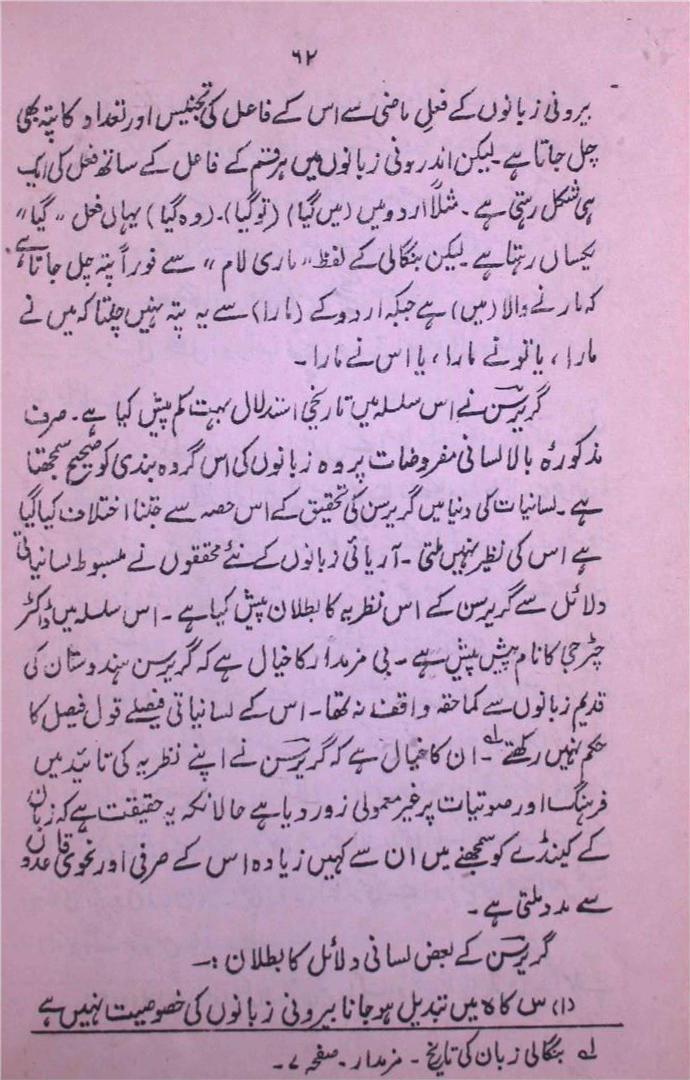 ۶۲
بیرونی زبانوں کے فعلِ ماضی سے اس کے فاعل کی تجنیس اور تعداد کا پتہ بھی
چل جاتا ہے۔ لیکن اندرونی زبانوں میں ہر قسم کے فاعل کے ساتھ فعل کی ایک
ہی شکل رہتی ہے۔ مثلاً اردو میں (میں گیا) (تو گیا)۔ (وہ گیا) یہاں فعل "گیا"
یکساں رہتا ہے۔ لیکن بنگالی کے لفظ "ماری لام" سے فوراً پتہ چل جاتا ہے۔
کہ مارنے والا (میں) ہے جبکہ اردو کے (مارا) سے یہ پتہ نہیں چلتا کہ میں نے
مارا، یا تو نے مارا، یا اس نے مارا۔
گریرسن نے اس سلسلہ میں تاریخی استدلال بہت کم پیش کیا ہے۔ صرف
مذکورہ بالا لسانی مفروضات پر وہ زبانوں کی اس گروہ بندی کو صحیح سمجھتا
ہے۔ لسانیات کی دنیا میں گریرسن کی تحقیق کے اس حصہ سے جتنا اختلاف کیا گیا
ہے اس کی نظیر نہیں ملتی۔ آریائی زبانوں کے نئے محققوں نے مبسوط لسانیاتی
دلائل سے گریرسن کے اس نظریہ کا بطلان پیش کیا ہے۔ اس سلسلہ میں ڈاکٹر
چٹرجی کا نام پیش پیش ہے۔ بی مزمدار کا خیال ہے کہ گریرسن ہندوستان کی
قدیم زبانوں سے کما حقہ واقف نہ تھا۔ اس کے لسانیاتی فیصلے قول فیصل کا
حکم نہیں رکھتے لے۔ ان کا خیال ہے کہ گریرسن نے اپنے نظریہ کی تائید میں
فرہنگ اور صوتیات پر غیر معمولی زور دیا ہے حالانکہ یہ حقیقت ہے کہ زبان
کے کینڈے کو سمجھنے میں ان سے کہیں زیادہ اس کے صرفی اور نحوی قاعدوں
سے مدد ملتی ہے۔
گریرسن کے بعض لسانی دلائل کا بطلان :۔
(۱) س کا ہ میں تبدیل ہو جانا بیرونی زبانوں کی خصوصیت نہیں ہے
لے بنگالی زبان کی تاریخ۔ مزمدار۔ صفحہ ۷۔